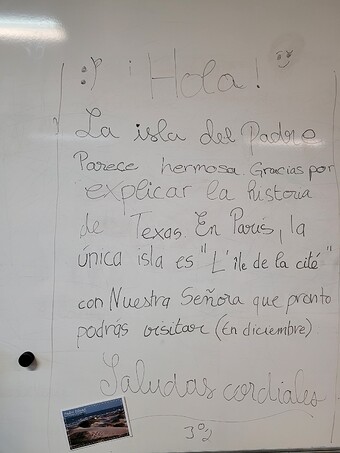 :) ¡Hola!
La isla del Padre
Parece hermosa. Gracias por
explicar la historia
de Texas. En París, la
única isla es "L'île de la cité"
con Nuestra Señora que pronto
podrás visitar (En diciembre)
Saludas cordiales
3°2